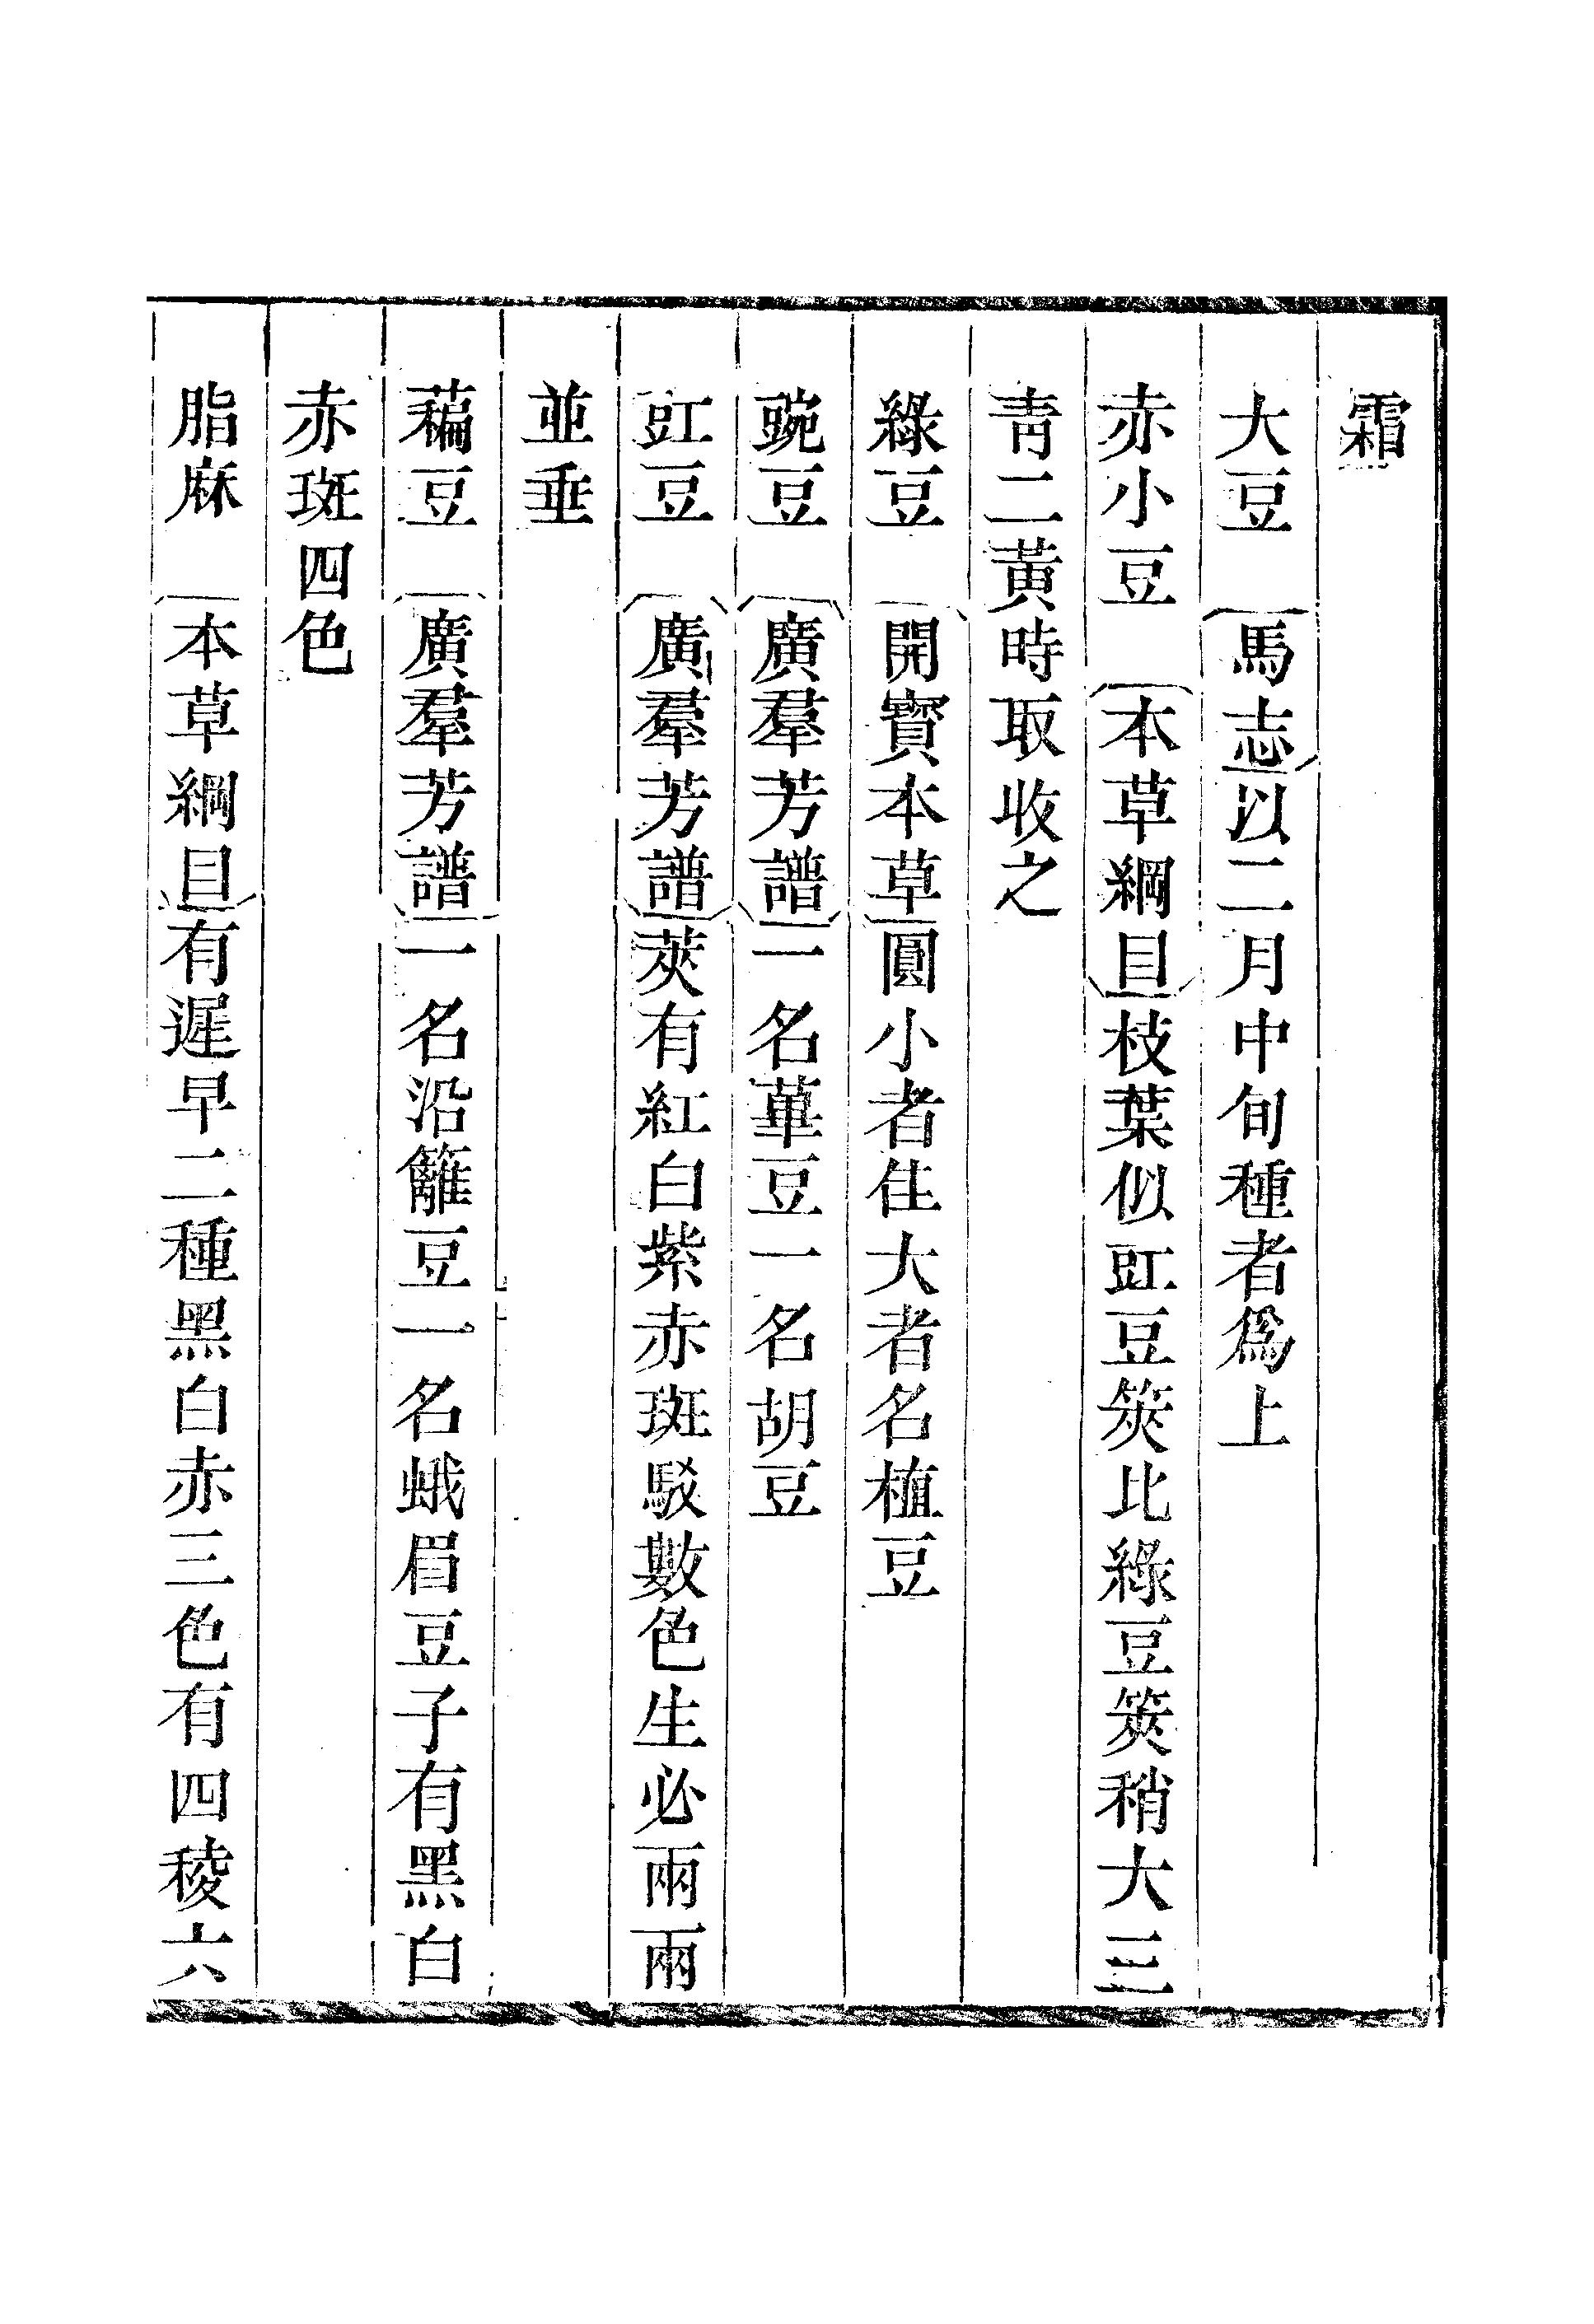 霜
大豆　〔馬志〕以二月中旬種者爲上
赤小豆　〔本草綱目〕枝葉似豇豆筴比綠豆筴稍大三
靑二黃時取收之
綠豆　〔開寶本草〕圓小者佳大者名植豆
豌豆　〔廣羣芳譜〕一名蓽豆一名胡豆
豇豆　〔廣羣芳譜〕莢有紅白紫赤斑駁數色生必兩兩
並垂
藊豆　〔廣羣芳譜〕一名沿籬豆一名蛾眉豆子有黑白
赤斑四色
脂麻　〔本草綱目〕有遲早二種黑白赤三色有四稜六